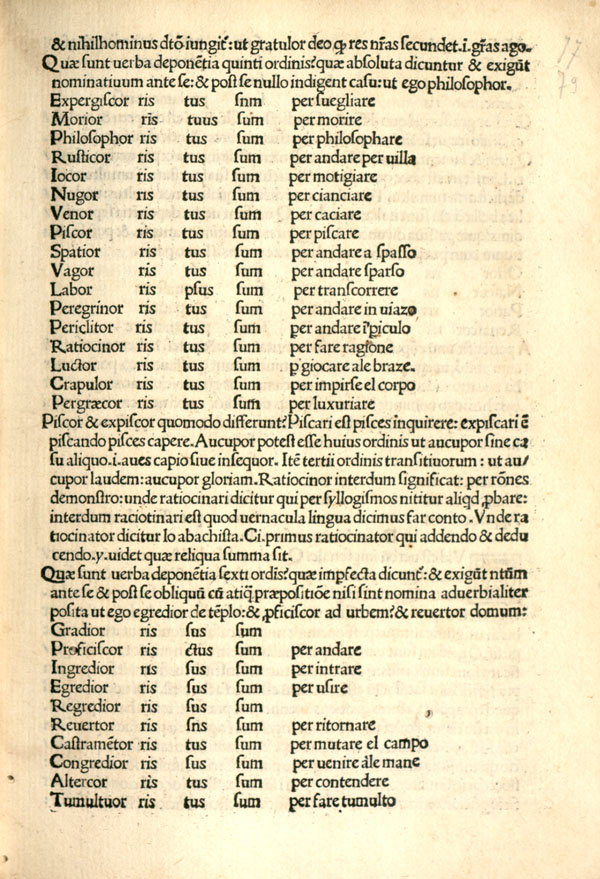 & nihilhominus dt̄o iungit᷑: ut gratulor deo ꝙ res nr̄as secundet.i.gr̄as ago.
Quæ sunt uerba deponētia quinti ordinis? quæ absoluta dicuntur & exigūt
nominatiuum ante se: & post se nullo indigent casu: ut ego philosophor.
Expergiscor ris tus snm per suegliare
Morior ris tuus sum per morire
Philosophor ris tus sum per philosophare
Rusticor ris tus sum per andare per uilla
Iocor ris tus sum per motigiare
Nugor ris tus sum per cianciare
Venor ris tus sum per caciare
Piscor ris tus sum per piscare
Spatior ris tus sum per andare a spasso
Vagor ris tus sum per andare sparso
Labor ris psus sum per transcorrere
Peregrinor ris tus sum per andare in uiazo
Periclitor ris tus sum per andare ī ꝑiculo
Ratiocinor ris tus sum per fare ragione
Luctor ris tus sum ꝑ giocare ale braze.
Crapulor ris tus sum per impirse el corpo
Pergræcor ris tus sum per luxuriare
Piscor & expiscor quomodo differunt? Piscari est pisces inquirere: expiscari ē
piscando pisces capere. Aucupor potest esse huius ordinis ut aucupor sine ca
su aliquo.i.aues capio siue insequor. Itē tertii ordinis transitiuorum: ut au/
cupor laudem: aucupor gloriam. Ratiocinor interdum significat: per rōnes
demonstro: unde ratiocinari dicitur qui per syllogismos nititur aliqd ꝓbare:
interdum raciotinari est quod uernacula lingua dicimus far conto. Vnde ra
tiocinator dicitur lo abachista. Ci. primus ratiocinator qui addendo & dedu
cendo.y.uidet quæ reliqua summa sit.
Quæ sunt uerba deponētia sexti ordis? quæ impfecta dicunt᷑: & exigūt ntūm
ante se & post se obliquū cū atiq præpositiōe nisi sint nomina aduerbialiter
posita ut ego egredior de tēplo: & ꝓficiscor ad urbem? & reuertor domum:
Gradior ris sus sum
Proficiscor ris ctus sum per andare
Ingredior ris sus sum per intrare
Egredior ris sus sum per usire
Regredior ris sus sum
Reuertor ris sns sum per ritornare
Castramētor ris tus sum per mutare el campo
Congredior ris sus sum per uenire āle mane
Altercor ris tus sum per contendere
Tumultuor ris tus sum per fare tumulto
77
79